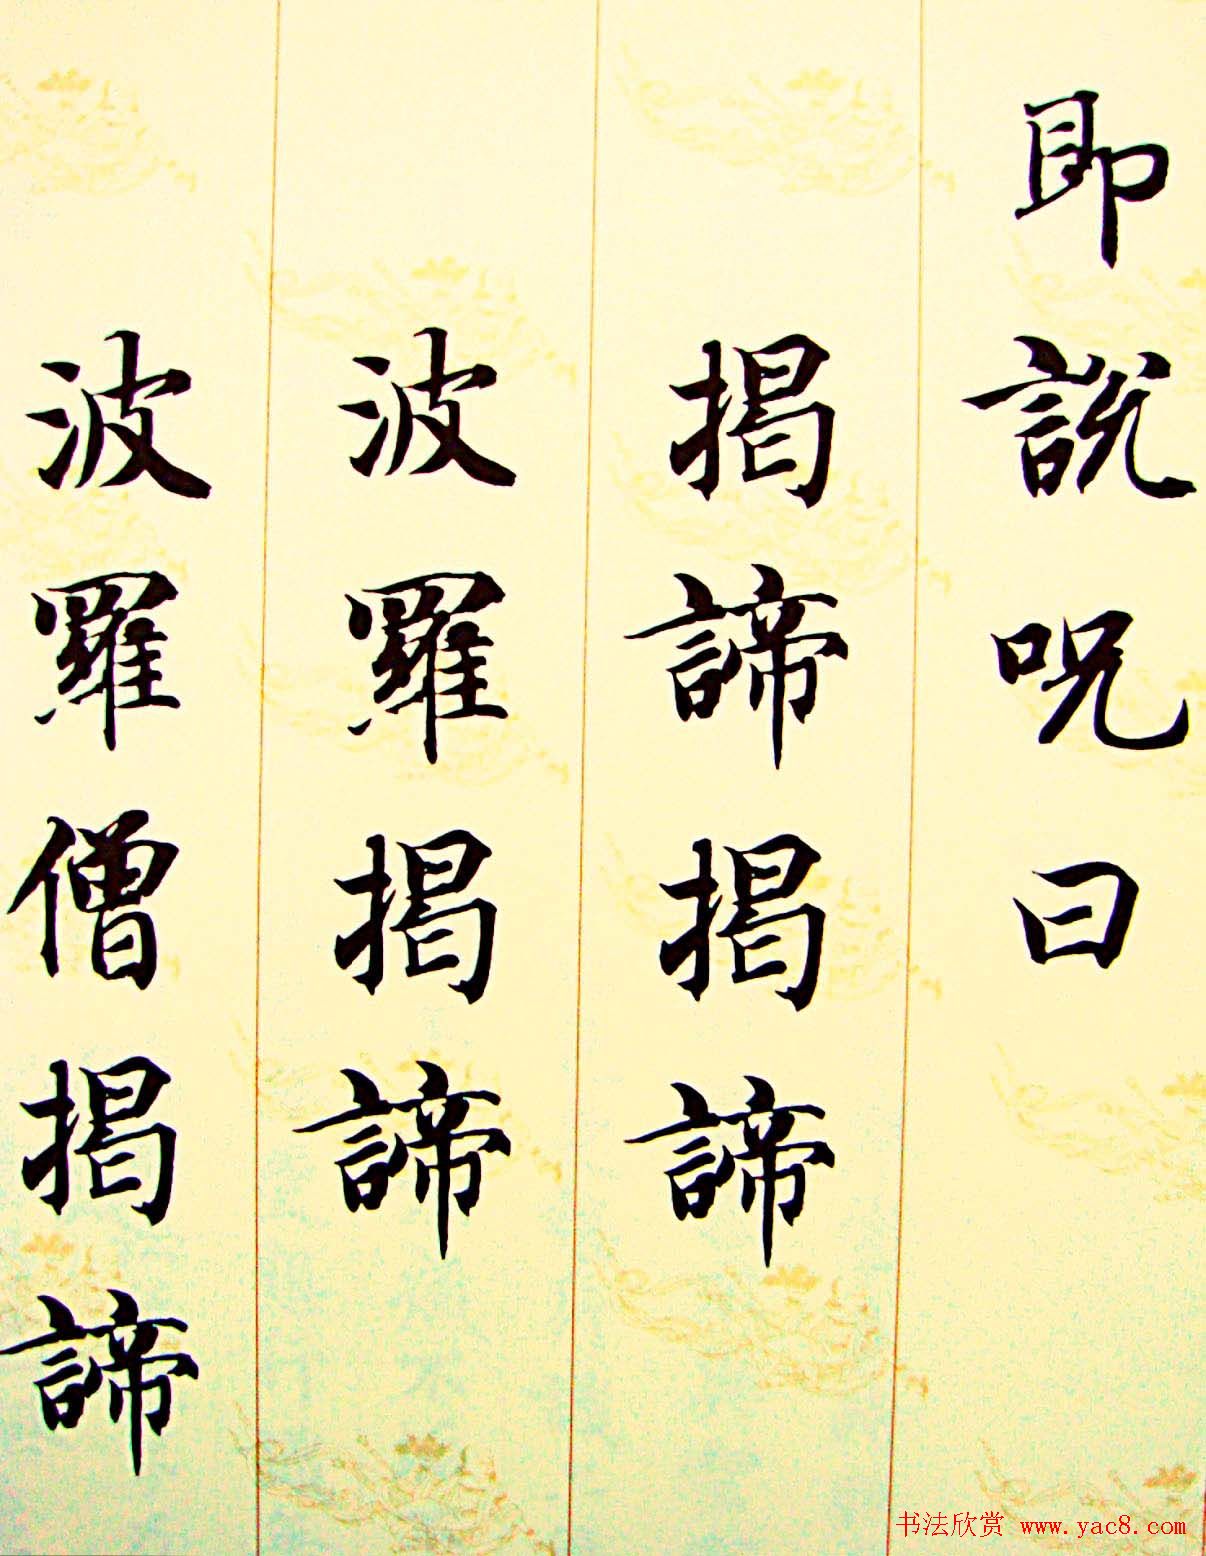 即說呪曰
揭諦揭諦
波羅揭諦
波羅僧揭諦
书法欣赏 www.yac8.com